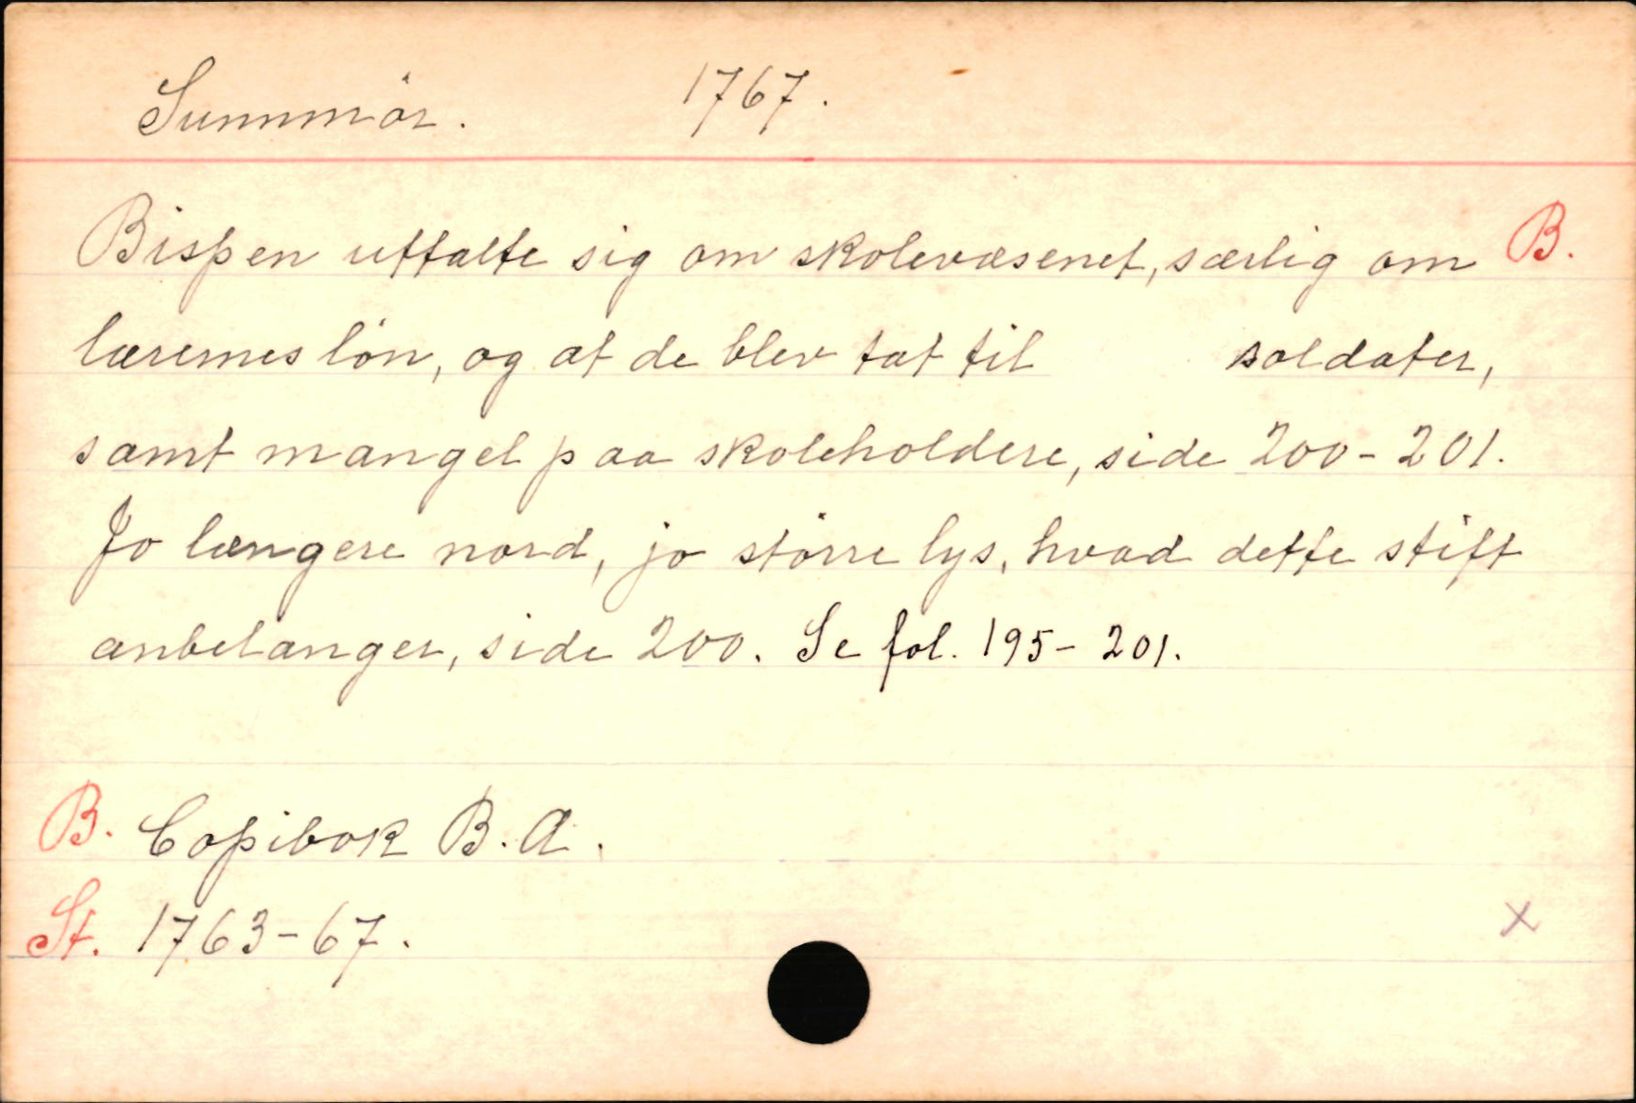 Sunnmör. 1767.
Bispen uttalte sig om skolevæsenet, særlig om B.
lærernes lön, og at de blev tat til soldater,
samt mangel paa skoleholdere, side 200-201.
Jo længere nord, jo större lys, hvad dette stift
anbelanger, side 200. Se fol. 195-201.
B. Copibok B.A.
St. 1763-67. x